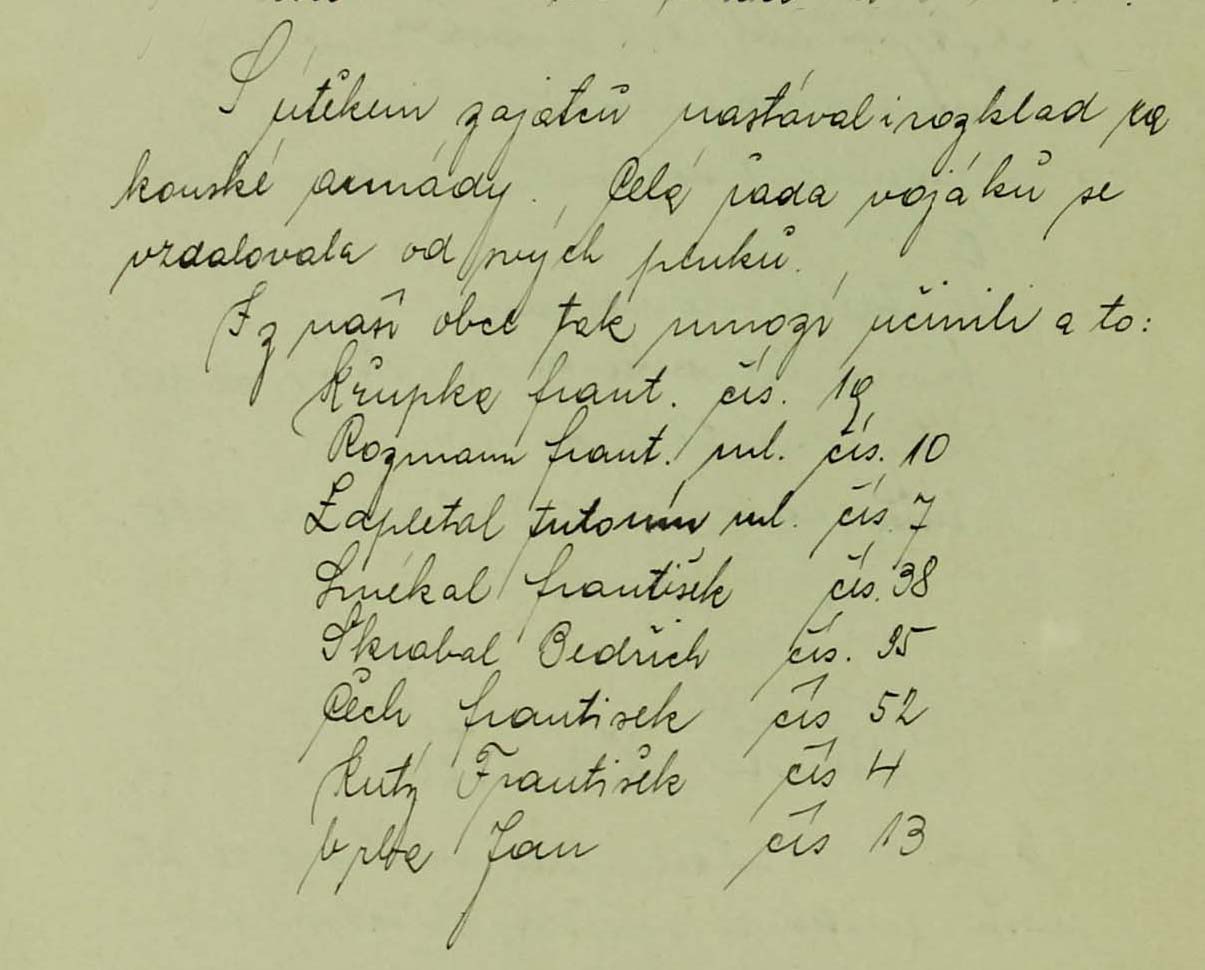 S útěkem zajatců nastával i rozklad ra
kouské armády. Celá řada vojáků se
vzdalovala od svých pluků.
I z naší obce tak mnozí učinili a to:
Křupka frant. čís. 19
Rozmann frant. ml. čís. 10
Zapletal Antonín ml. čís. 7
Smékal František čís. 38
Škrabal Bedřich čís. 35
Čech František čís 52
Kutý František čís 4
Vrba Jan čís 13